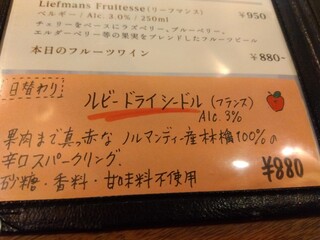 Liefmans Fruitesse(リーフマンス)
ベルギー / Alc. 3.0% / 250ml
¥950
チェリーをベースにラズベリー、ブルーベリー、
エルダーベリー等の果実をブレンドしたフルーツビール
本日のフルーツワイン
¥880-
日替わり
ルビードライシードル (フランス)
Alc.3%
果肉まで真っ赤なノルマンディー産林檎100%の
辛口スパークリング.
砂糖・香料・甘味料不使用
¥880